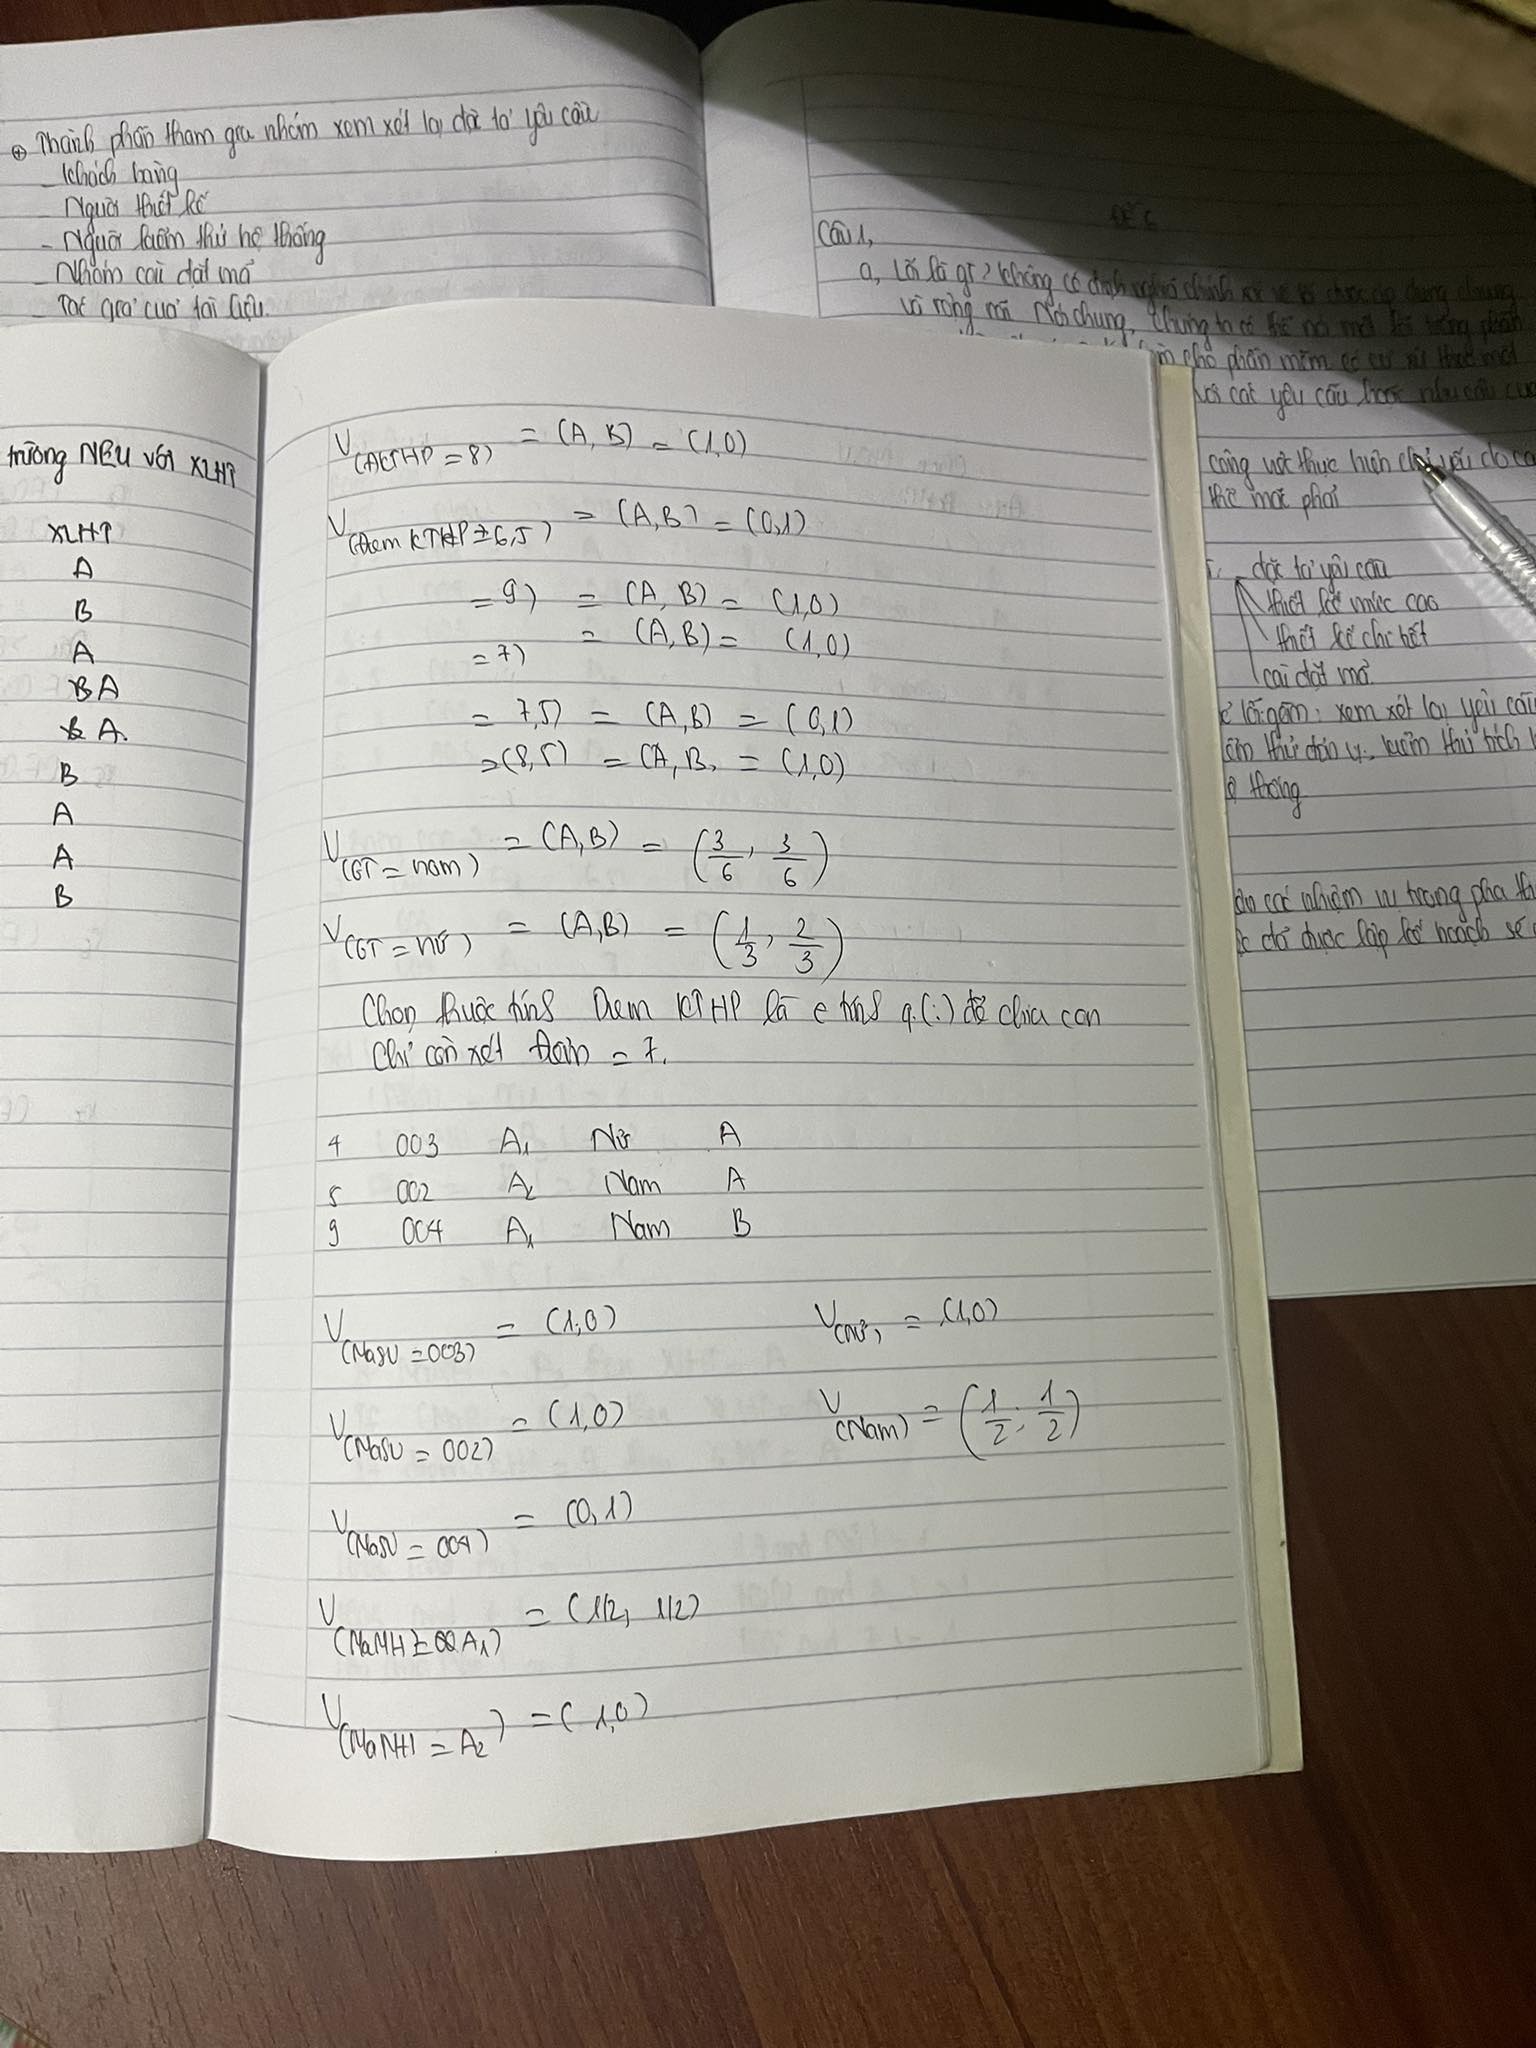 ⊕ Thành phần tham gia nhóm xem xét lại đặc tả yêu cầu
- Khách hàng
- Người thiết kế
- Người kiểm thử hệ thống
- Nhóm cài đặt mã
- Tác giả của tài liệu.
Câu 1,
a, Lỗi là gì? Không có định nghĩa chính
và rộng rãi Nói chung, chúng ta có thể nói một lỗi trong phần
cho phần mềm
với các yêu cầu hoặc nhu cầu
công việc thực hiện chủ yếu do
thể mắc phải
đặc tả yêu cầu
thiết kế mức cao
thiết kế chi tiết
cài đặt mã
lỗi gồm: xem xét lại yêu cầu
thử đơn vị, kiểm thử tích
thống
các nhiệm vụ trong pha
đó được lập kế hoạch sẽ
trường NEU với XLHT
XLHT
A
B
A
B A
A.
B
A
A
B
V(ĐKTHP = 8) = (A, B) = (1,0)
V(Điểm KTHP = 6,5) = (A,B) = (0,1)
= 9) = (A, B) = (1,0)
= 7) = (A,B) = (1,0)
= 7,5) = (A,B) = (0,1)
= (8,5) = (A,B, = (1,0)
V(GT = nam) = (A,B) = (3/6, 3/6)
V(GT = nữ) = (A,B) = (1/3, 2/3)
Chọn thuộc tính Điểm KTHP là e tính q.(:) để chia con
Chỉ còn xét Điểm = 7.
4 003 A1 Nữ A
5 002 A2 Nam A
9 004 A1 Nam B
V(MaSV = 003) = (1,0) V(Nữ) = (1,0)
V(MaSV = 002) = (1,0) V(Nam) = (1/2, 1/2)
V(MaSV = 004) = (0,1)
V(MaMH = A1) = (1/2, 1/2)
V(MaMH = A2) = (1,0)